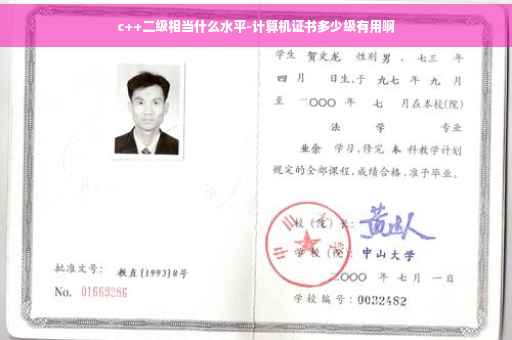 c++二级相当什么水平-计算机证书多少级有用啊
学生 贺文龙 性别 男 、七三 年
四 月 日生,于 九七 年 九 月
至 二〇〇〇 年 七 月在本校(院)
法 学 专业
业余 学习,修完 本 科教学计划
规定的全部课程,成绩合格,准予毕业。
校(院)长:
学校(院): 中山大学
二〇〇〇 年 七 月 一 日
学校编号: 0032482
批准文号: 教直[1993]8号
No. 01669286